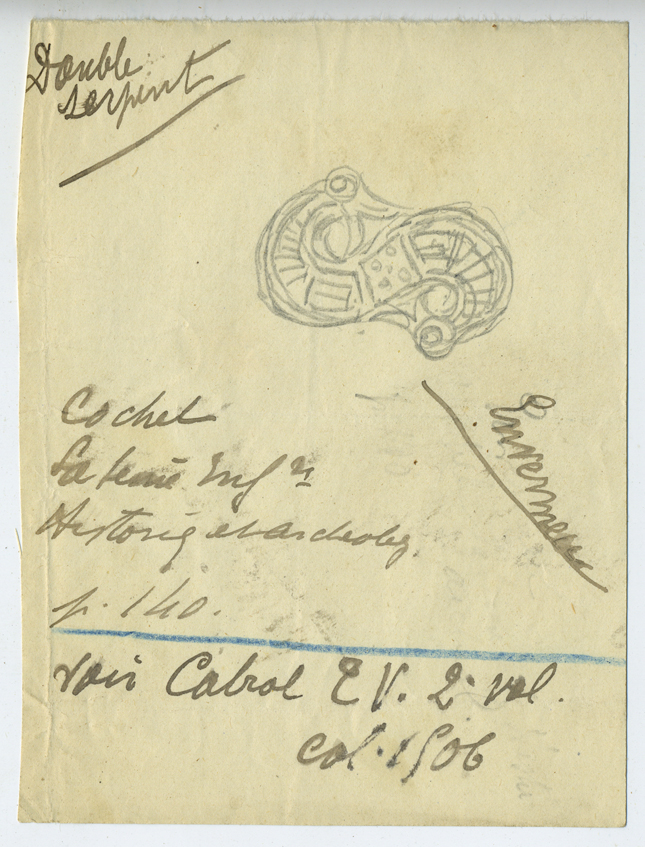 Double
serpent
Cochet
La Seine Infre
Historiq et archeolog.
p. 140.
Envermeu
voir Cabrol T V. 2e vol.
col. 1506